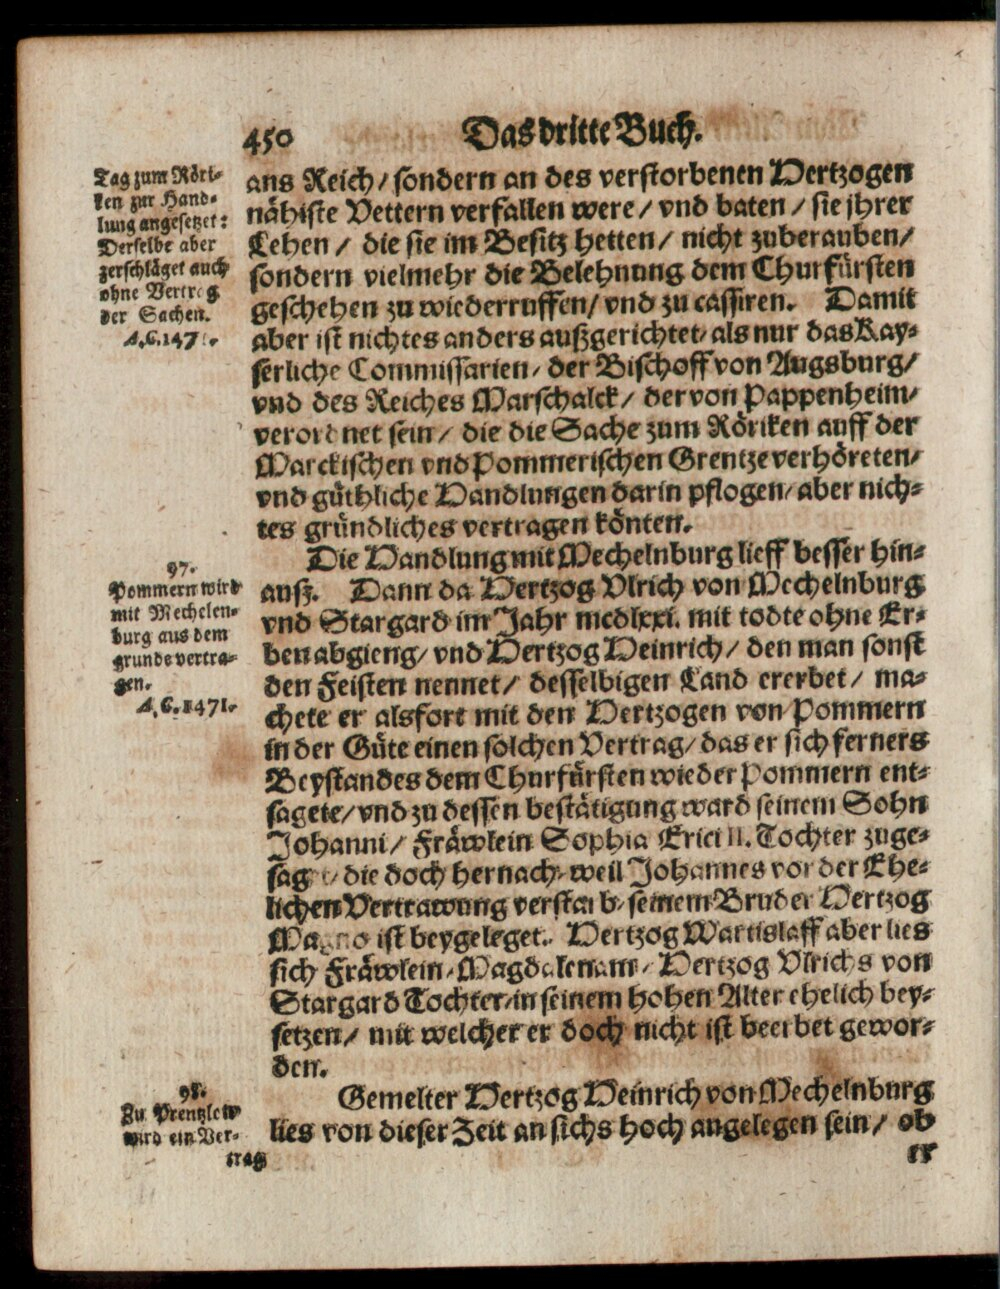 450 Das dritte Buch.
Tag zum Röri-
ken zur Hand-
lung angesetzet:
Derselbe aber
zerschläget auch
ohne Vertrag
der Sachen.
A.C.147
ans Reich / sondern an des verstorbenen Hertzogen
nähiste Vettern verfallen were / vnd baten / sie jhrer
Lehen / die sie im Besitz hetten / nicht zuberauben /
sondern vielmehr die Belehnung dem Churfürsten
geschehen zu wiederruffen / vnd zu cassiren. Damit
aber ist nichtes anders außgerichtet / als nur das Kay-
serliche Commissarien / der Bischoff von Augsburg /
vnd des Reiches Marschalck / der von Pappenheim /
verordnet sein / die die Sache zum Röriken auff der
Marckischen vnd Pommerischen Grentze verhöreten /
vnd güthliche Handlungen darin pflogen / aber nich-
tes gründliches vertragen könten.
97.
Pommern wird
mit Mechelen-
burg aus dem
grunde vertra-
gen.
A.C.1471.
Die Handlung mit Mechelnburg lieff besser hin-
auß. Dann da Hertzog Vlrich von Mechelnburg
vnd Stargard im Jahr mcdlxxi. mit todte ohne Er-
ben abgieng / vnd Hertzog Heinrich / den man sonst
den Feisten nennet / desselbigen Land ererbet / ma-
chete er alsfort mit den Hertzogen von Pommern
in der Güte einen solchen Vertrag / das er sich ferners
Beystandes dem Churfürsten wieder Pommern ent-
sagete / vnd zu dessen bestätigung ward seinem Sohn
Johanni / Fräwlein Sophia Erici II. Tochter zuge-
sagt / die doch hernach / weil Johannes vor der Ehe-
lichen Vertrawung verstarb / seinem Bruder Hertzog
Magno ist beygeleget. Hertzog Wartislaff aber lies
sich Fräwlein / Magdalenam / Hertzog Vlrichs von
Stargard Tochter / in seinem hohen Alter ehelich bey-
setzen / mit welcher er doch nicht ist beerbet gewor-
den.
98.
Zu Prentzlow
wird ein Ver-
trag
Gemelter Hertzog Heinrich von Mechelnburg
lies von dieser Zeit an sichs hoch angelegen sein / ob
er